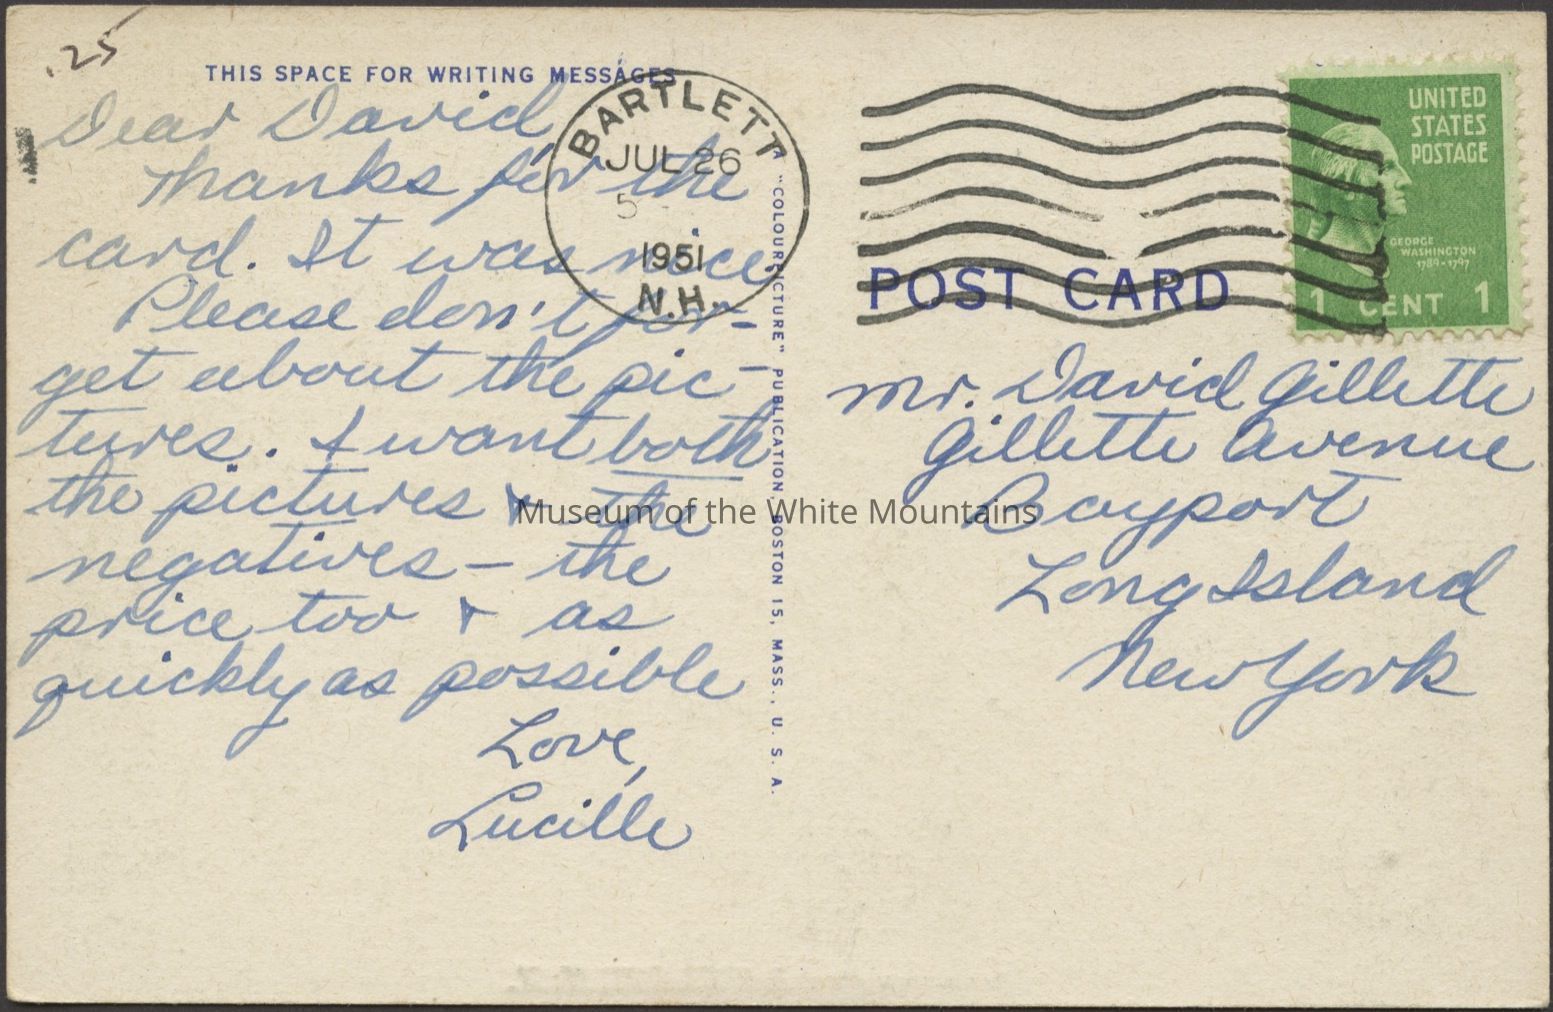 .25
THIS SPACE FOR WRITING MESSAGES
Dear David,
Thanks for the
card. It was nice.
Please don't for-
get about the pic-
tures. I want both
the pictures & the
negatives — the
price too & as
quickly as possible
Love,
Lucille
BARTLETT
JUL 26
5
1951
N.H.
A "COLOURPICTURE" PUBLICATION, BOSTON 15, MASS., U. S. A.
UNITED
STATES
POSTAGE
GEORGE
WASHINGTON
1789-1797
1 CENT 1
POST CARD
Mr. David Gillette
Gillette Avenue
Bayport
Long Island
New York
Museum of the White Mountains